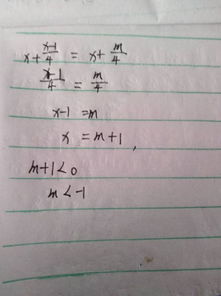 x + x-1/4 = x + m/4
x-1/4 = m/4
x-1 = m
x = m+1,
m+1<0
m<-1